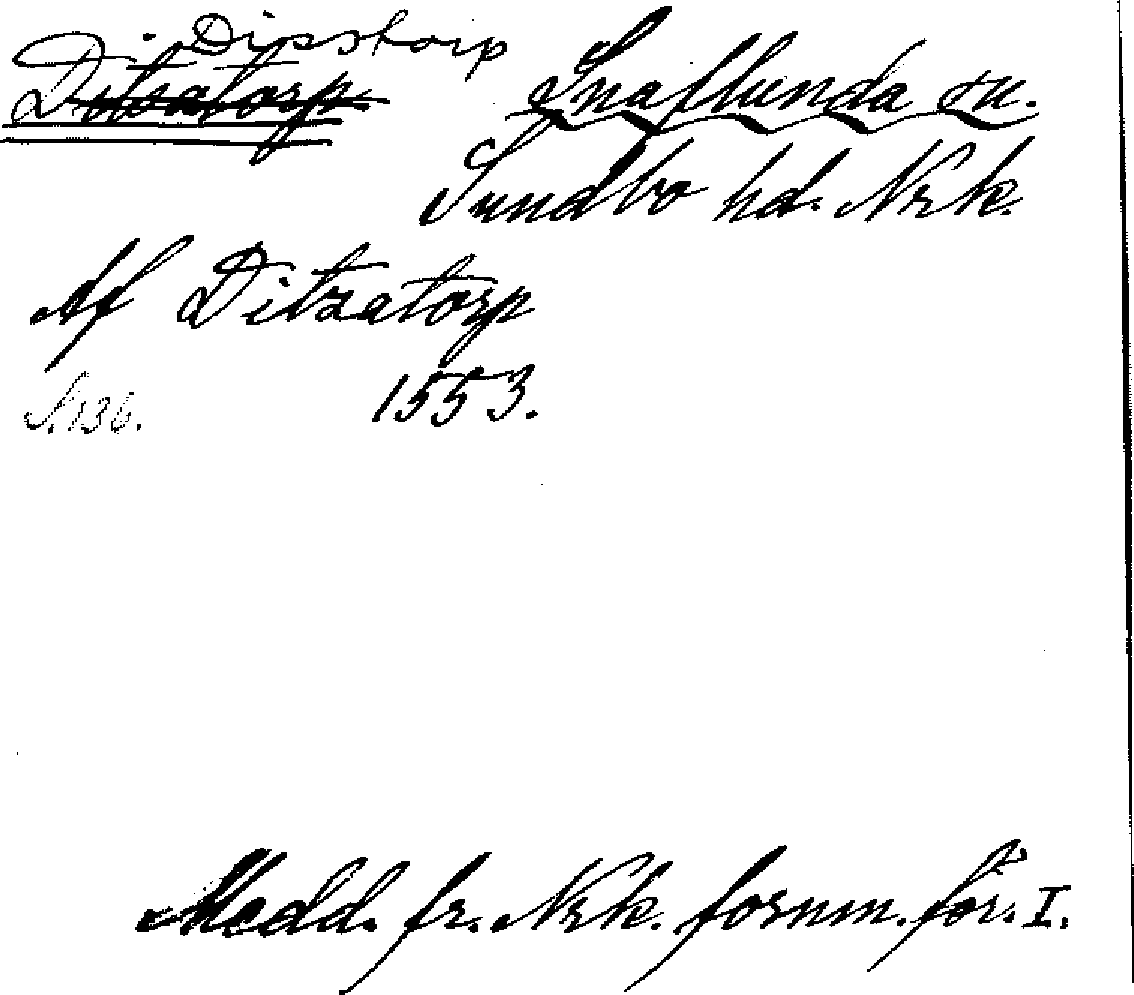 Dipstorp
Ditzatorp. Snaflunda sn.
Sundbo hd. Nrk.
Af Ditzatorp
S. 136. 1553.
Medd. fr. Nrk. fornm. för. I.